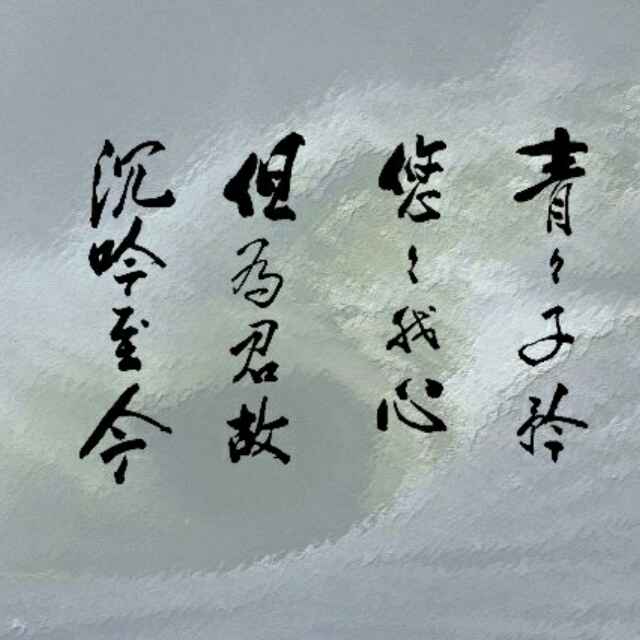 青〻子衿
悠〻我心
但为君故
沉吟至今